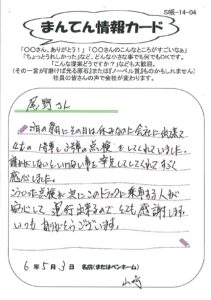 S帳-14-04
まんてん情報カード
「○○さん、ありがとう！」「○○さんのこんなところがすごいなぁ」
「ちょっとうれしかった」など、どんな小さな事でも何でもOKです。
「こんな提案どうですか？」なども大歓迎。
（その一言が【磨けば光る原石】または【ノーベル賞】ものかもしれません）
社員の皆さんの声で会社が変わります。
尾野さん
の朝にその日は休みなのに会社に出勤して
4tの1号と3号の点検をしてくれていました。
誰かにしないといけない事を率先してしてくれてすごく
感心しました。
こういった点検が次にこのトラックに乗車する人が
安心して運行出来るのでとても感謝します。
いつもありがとうございます。
6年5月3日 名前（またはペンネーム）
山崎